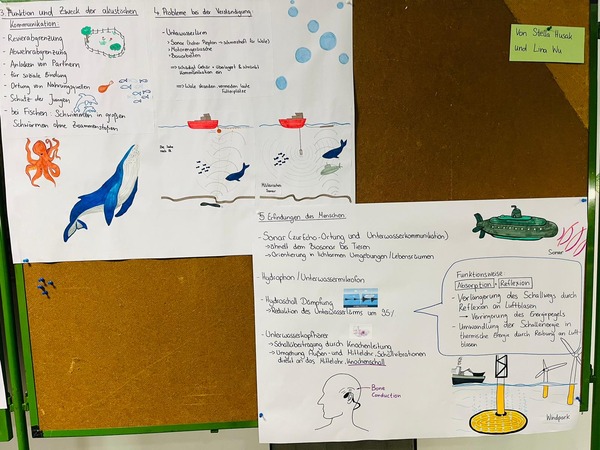 3. Funktion und Zweck der akustischen
Kommunikation:
- Revierabgrenzung
- Abwehrabgrenzung
- Anlocken von Partnern
- für soziale Bindung
- Ortung von Nahrungsquellen
- Schutz der Jungen
- bei Fischen: Schwimmen in großen
Schwärmen ohne Zusammenstoßen
4. Probleme bei der Verständigung:
- Unterwasserlärm
→ schädigt Gehör + überlagert & schränkt
Kommunikation ein
→ Wale
Militärisches
Sonar
Von Stella Husak
und Lina Wu
5. Erfindungen des Menschen:
- Sonar (zur Echo-Ortung und Unterwasserkommunikation)
→ ähnelt dem Biosonar bei Tieren
→ Orientierung in lichtarmen Umgebungen/Lebensräumen
- Hydrophon/Unterwassermikrofon
- Hydroschall Dämpfung
→ Reduktion des Unterwasserlärms um 95%
- Unterwasserkopfhörer
→ Schallübertragung durch Knochenleitung
→ Umgehung Außen- und Mittelohr, Schallvibrationen
direkt an das Mittelohr, Knochenschall
Bone
Conduction
Sonar
Funktionsweise:
Absorption + Reflexion
- Verlängerung des Schallwegs durch
Reflexion an Luftblasen
→ Verringerung des Energiepegels
- Umwandlung der Schallenergie in
thermische Energie durch Reibung an Luft-
blasen
Windpark